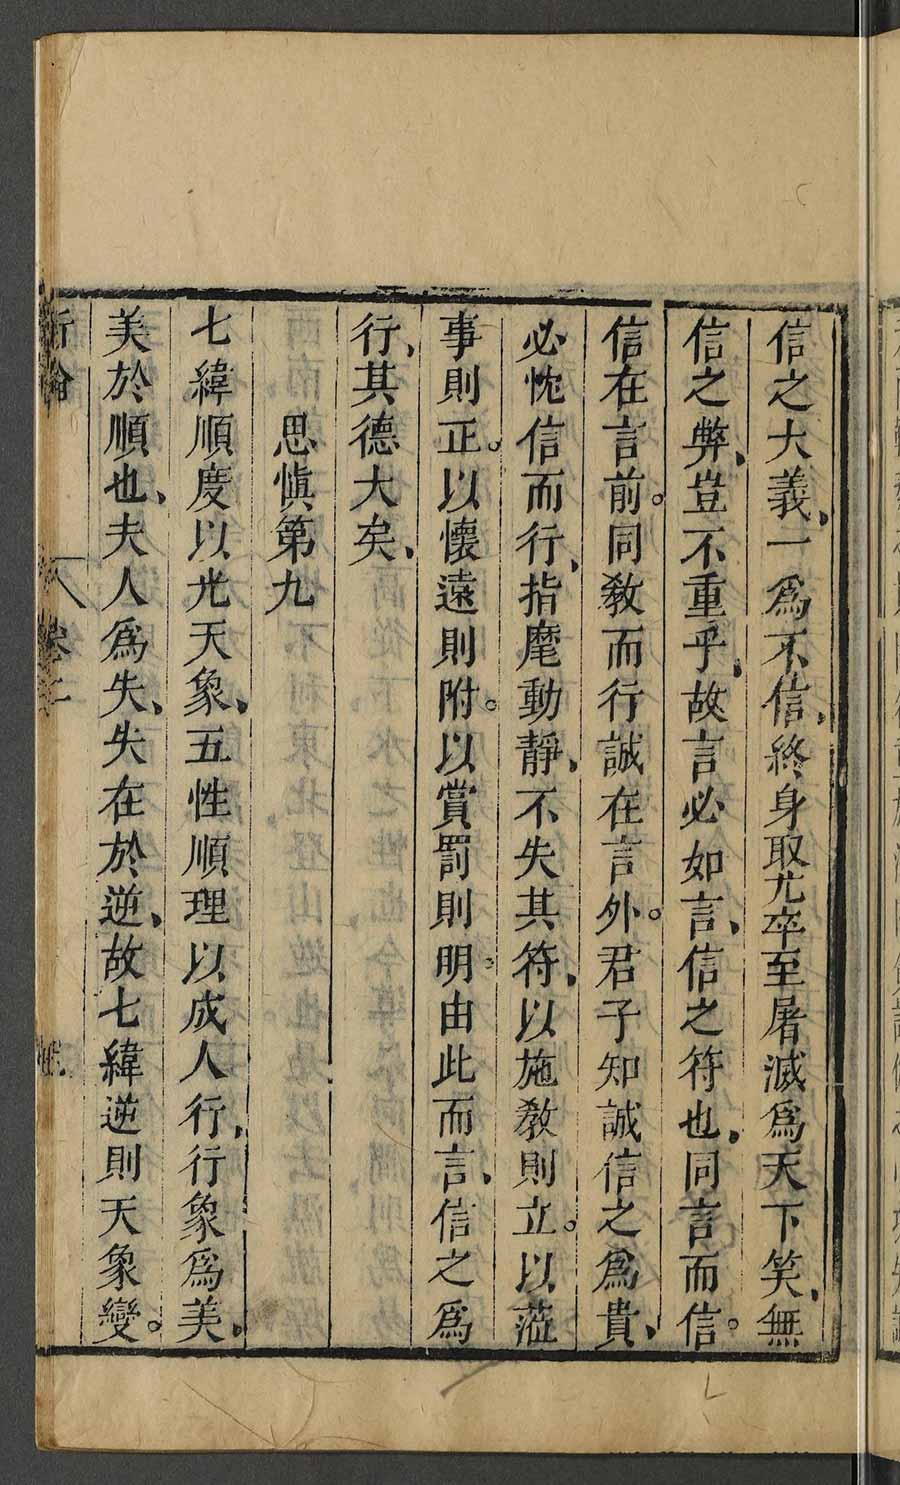 信之大義、一爲不信、終身取尤卒至屠滅爲天下笑、無
信之弊、豈不重乎、故言必如言、信之符也、同言而信。
信在言前。同敎而行誠在言外。君子知誠信之爲貴、
必忱信而行、指麾動靜、不失其符、以施敎則立。以蒞
事則正。以懷遠則附。以賞罰則明、由此而言、信之爲
行、其德大矣、
思愼第九
七緯順度以光天象、五性順理以成人行、行象爲美、
美於順也、夫人爲失、失在於逆、故七緯逆則天象變。
新論
卷二